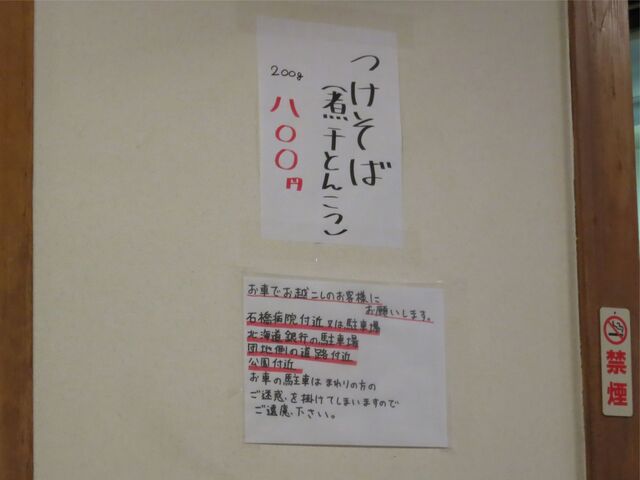 つけそば
(煮干とんこつ)
200g
八〇〇円
お車でお越しのお客様に
お願いします。
石橋病院付近又は駐車場
北海道銀行の駐車場
団地側の道路付近
公園付近
お車の駐車はまわりの方の
ご迷惑を掛けてしまいますので
ご遠慮下さい。
禁煙